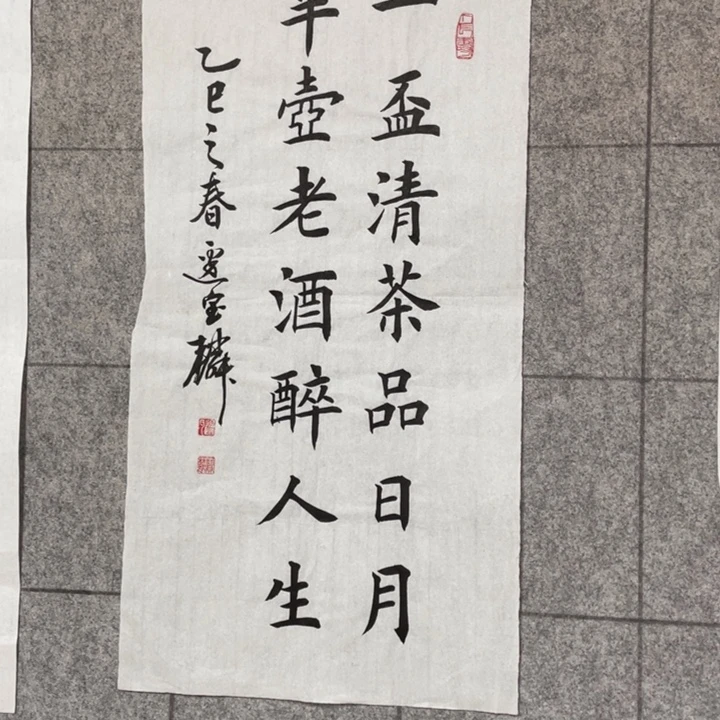 一盃清茶品日月
半壺老酒醉人生
乙巳之春邊宝麟